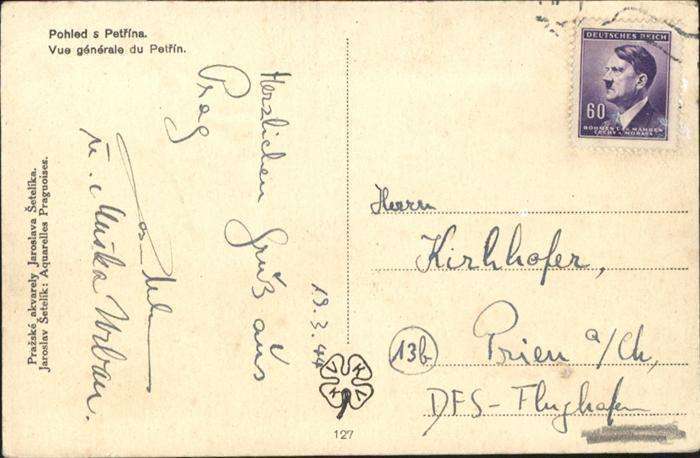 Pohled s Petřína.
Vue générale du Petřín.
Pražské akvarely Jaroslava Šetelíka.
Jaroslav Šetelík: Aquarelles Praguoises.
Herzlichen Gruß aus
Prag
19.3.44
u. Muška Urban.
DEUTSCHES REICH
60
BÖHMEN U. MÄHREN
ČECHY A MORAVA
Herrn
Kirchhofer,
13b
Prien a/Ch,
DFS-Flughafen
VKKV
127